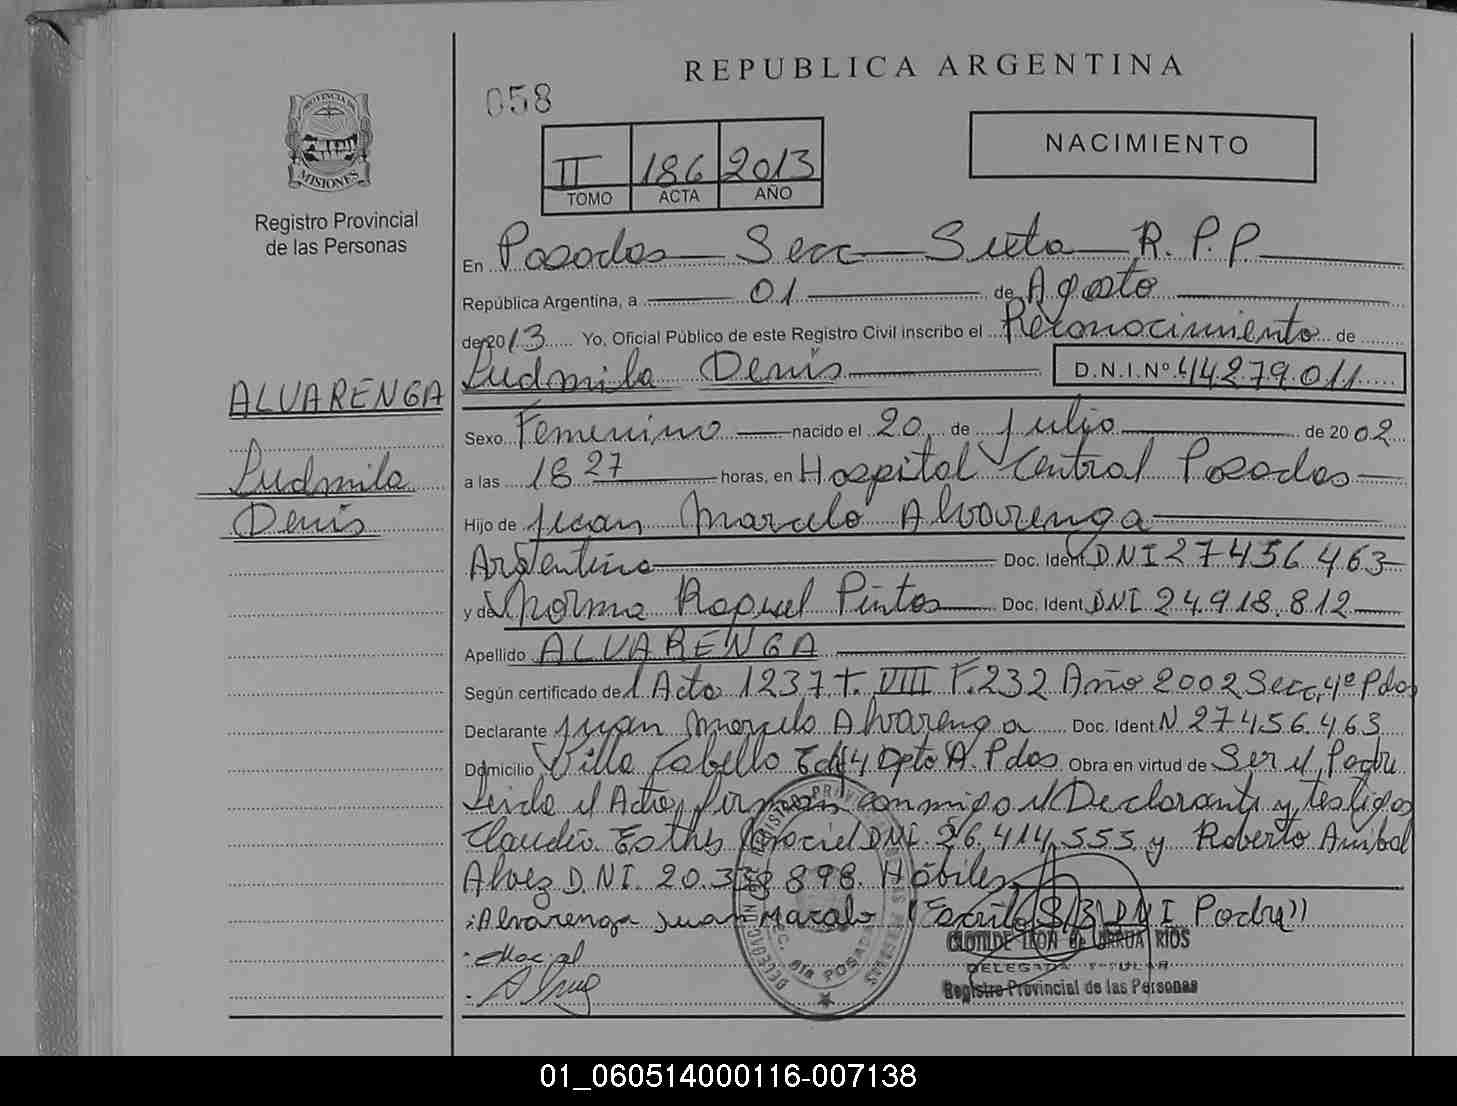 REPUBLICA ARGENTINA
058
PROVINCIA DE
MISIONES
Registro Provincial
de las Personas
II 186 2013
TOMO ACTA AÑO
NACIMIENTO
En Posadas Secc Sexta R.P.P
República Argentina, a 01 de Agosto
de 2013 Yo, Oficial Público de este Registro Civil inscribo el Reconocimiento de
Ludmila Denis D.N.I.Nº 44.279.011
ALVARENGA
Ludmila
Denis
Sexo Femenino nacido el 20 de Julio de 2002
a las 18 27 horas, en Hospital Central Posadas
Hijo de Juan Marcelo Alvarenga
Argentino Doc. Ident DNI 27.456.463
y de Norma Raquel Pintos Doc. Ident DNI 24.918.812
Apellido ALVARENGA
Según certificado de Acta 1237 T. VIII F.232 Año 2002 Secc. 4º Pdas
Declarante Juan Marcelo Alvarenga Doc. Ident N 27.456.463
Domicilio Villa Cabello Edif 4 Dpto A. Pdas Obra en virtud de Ser el Padre
Leida el Acta, firman conmigo el Declarante y testigos
Claudio DNI. 26.414.555 y Roberto Anibal
Alvez D.NI. 20. 898. Hábiles
Alvarenga Juan Marcelo (Escrito S/B DNI Padre)
CLOTILDE LEON de URRUA RIOS
DELEGADA TITULAR
Registro Provincial de las Personas
01_060514000116-007138